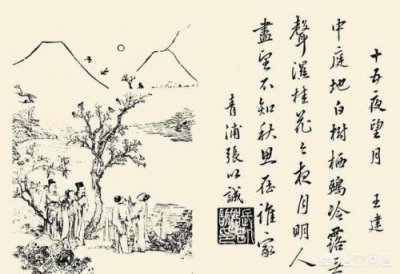 十五夜望月　王建
中庭地白樹栖鵶冷露無
聲濕桂花今夜月明人
盡望不知秋思在誰家
青浦張以誠
悟空问答